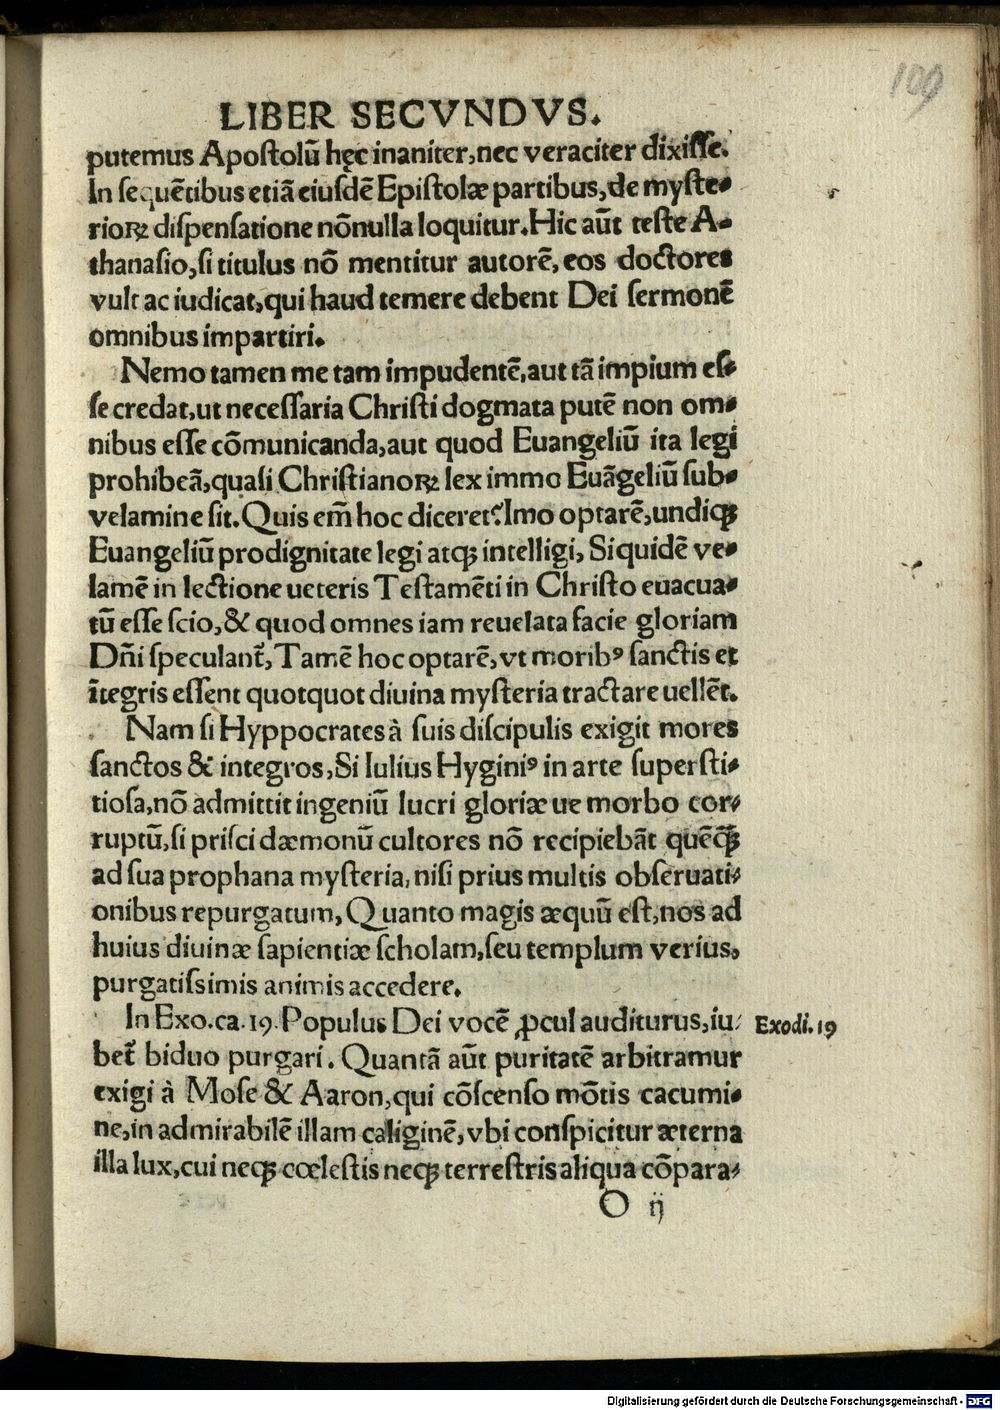 109
LIBER SECVNDVS.
putemus Apoſtolū hęc inaniter, nec veraciter dixiſſe.
In ſequētibus etiā eiuſdē Epiſtolæ partibus, de myſte-
rioꝝ diſpenſatione nōnulla loquitur. Hic aūt teſte A-
thanaſio, ſi titulus nō mentitur autorē, eos doctores
vult ac iudicat, qui haud temere debent Dei ſermonē
omnibus impartiri.
Nemo tamen me tam impudentē, aut tā impium eſ-
ſe credat, ut neceſſaria Chriſti dogmata putē non om-
nibus eſſe cōmunicanda, aut quod Euangeliū ita legi
prohibeā, quaſi Chriſtianoꝝ lex immo Euāgeliū ſub-
velamine ſit. Quis em̄ hoc diceret? Imo optarē, undiqꝫ
Euangeliū prodignitate legi atqꝫ intelligi, Siquidē ve-
lamē in lectione ueteris Teſtamēti in Chriſto euacua-
tū eſſe ſcio, & quod omnes iam reuelata facie gloriam
Dn̄i ſpeculant̄, Tamē hoc optarē, vt moribꝰ ſanctis et
ītegris eſſent quotquot diuina myſteria tractare uellēt.
Nam ſi Hyppocrates à ſuis diſcipulis exigit mores
ſanctos & integros, Si Iulius Hyginiꝰ in arte ſuperſti-
tioſa, nō admittit ingeniū lucri gloriæ ue morbo cor-
ruptū, ſi priſci dæmonū cultores nō recipiebāt quēqꝫ̄
ad ſua prophana myſteria, niſi prius multis obſeruati-
onibus repurgatum, Quanto magis æquū eſt, nos ad
huius diuinæ ſapientiæ ſcholam, ſeu templum verius,
purgatiſsimis animis accedere.
In Exo. ca. 19. Populus Dei vocē ꝓcul auditurus, iu-
bet̄ biduo purgari. Quantā aūt puritatē arbitramur
exigi à Moſe & Aaron, qui cōſcenſo mōtis cacumi-
ne, in admirabilē illam caliginē, vbi conſpicitur æterna
illa lux, cui neqꝫ cœleſtis neqꝫ terreſtris aliqua cōpara-
Exodi. 19
O ij
Digitalisierung gefördert durch die Deutsche Forschungsgemeinschaft - DFG